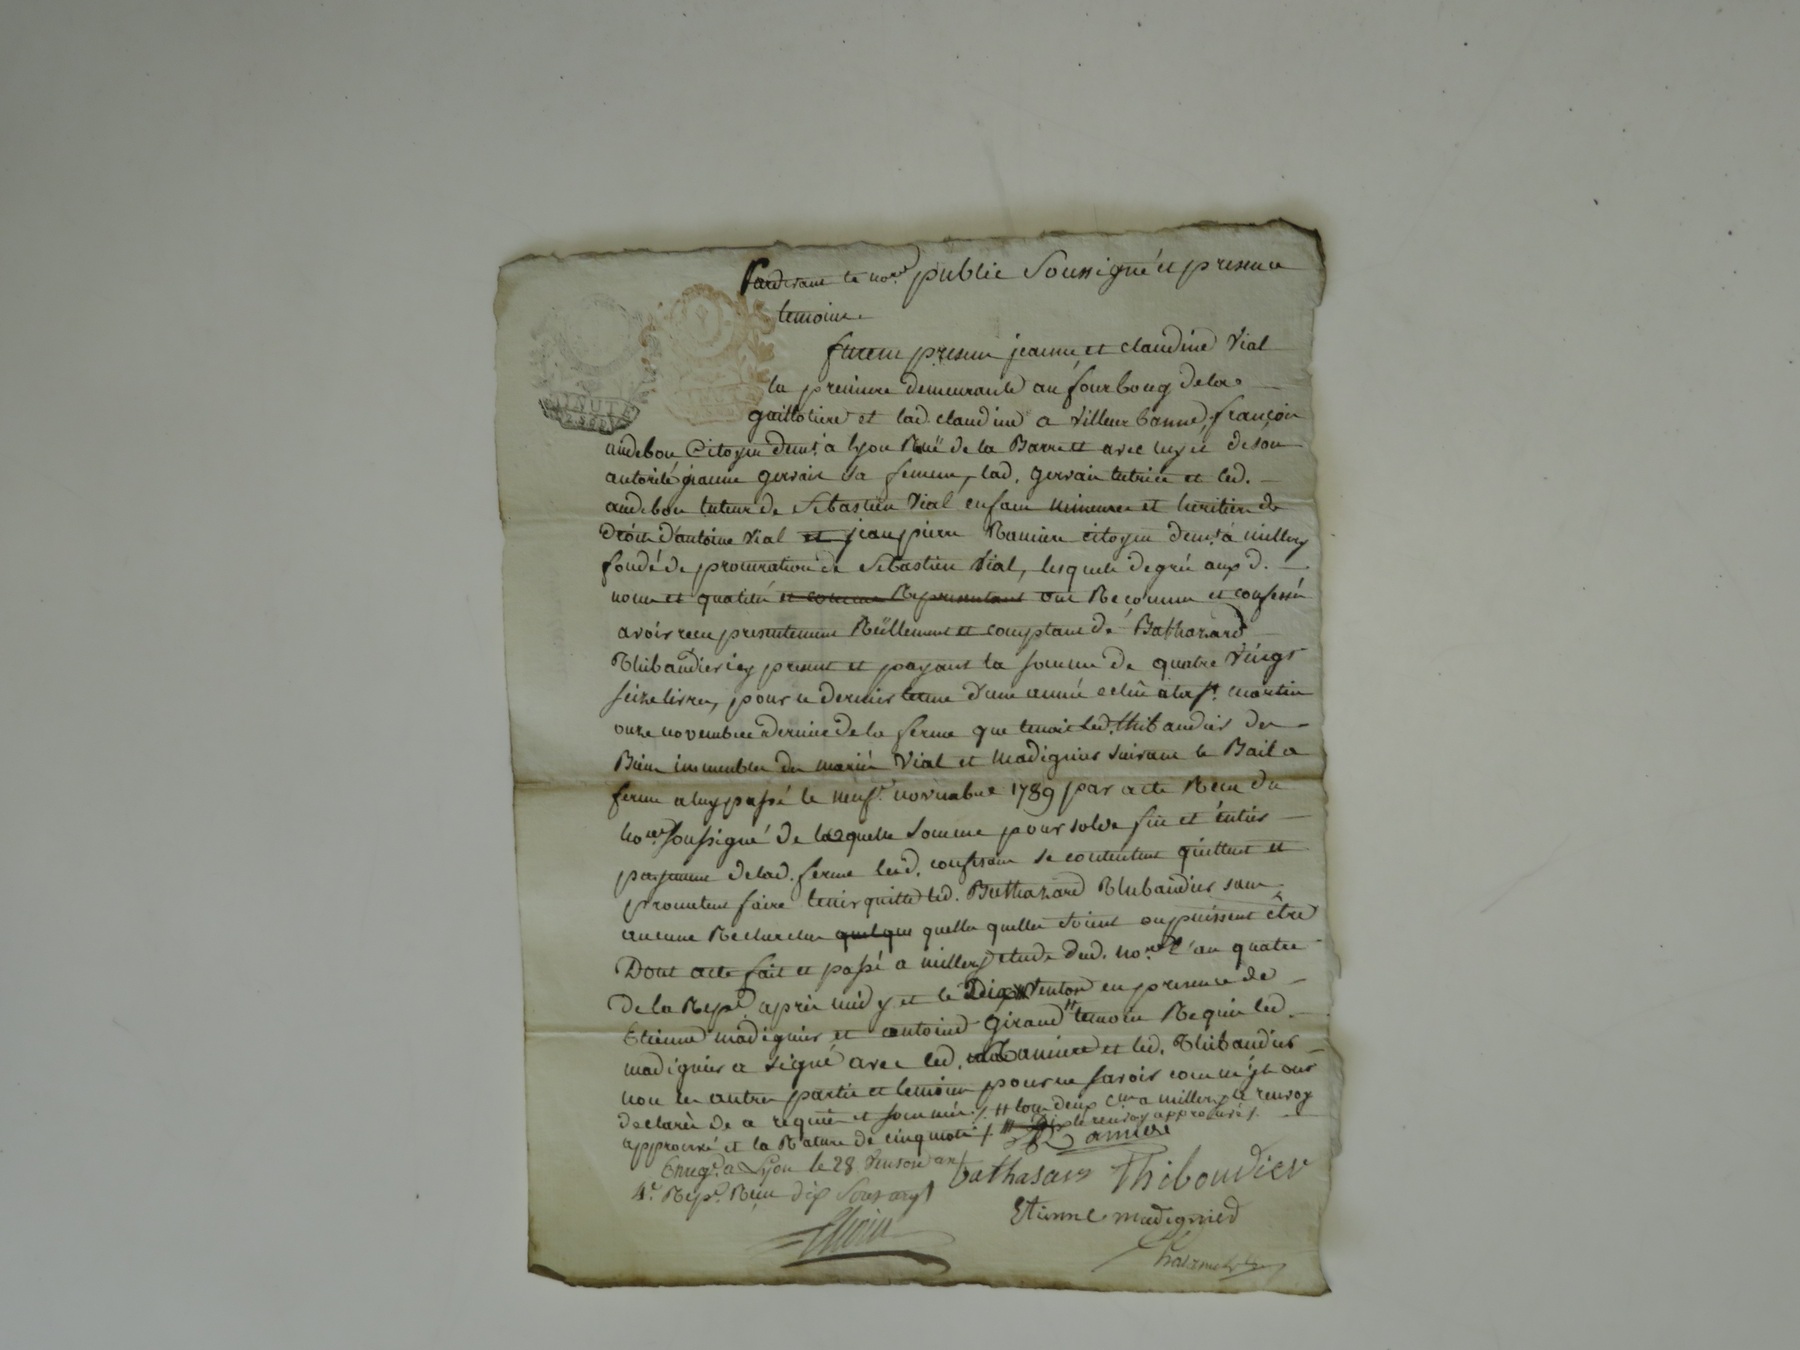 Pardevant le no.re public Soussigné et presence
temoins
furent presens jeanne et claudine Vial
la premiere demeurante au fourbourg dela
guillotiere et lad. claudine a Villeurbanne, françois
audebon Citoyen dem.t a lyon Rüe de la Barre et avec luy et de son
autorité jeanne gervais sa femme, lad. gervais tutrice et led.
audebon tuteur de Sebastien Vial enfans mineures et heritiers de
droit d'antoine Vial et jean pierre Ramiere citoyen dem.t a millery
fondé de procuration de Sebastien Vial, lesquels de gré aux d.
noms et qualités et comme Representant ont Reconnu et confessé
avoir reçu presentement Réellement et comptant de Bathazard
Thibaudier icy present et payant la somme de quatre vingt
seize livres, pour le dernier terme d'une année echue a la s.t martin
onze novembre dernier de la ferme que tenoit led. thibaudier des
Biens immeubles des mariés Vial et madignier suivant le Bail a
ferme a luy passé le neuf novembre 1789 par acte Reçu du
no.re soussigné de laquelle somme pour solde fin et entier
payement de lad. ferme lesd. confessans se contentent quittent et
promettent faire tenir quitte led. Bathazard Thibaudier sans
aucune Recherches quelque quelles quelles soient ou puissent être
Dont acte fait et passé a millery etude dud. no.re l'an quatre
de la Rep.e après midy et le Dix Ventose en presence de
Etienne madignier et antoine Giraud # temoins Requis led.
madignier a signé avec led. Ramiere et led. Thibaudier
non les autres parties et temoins pour ne savoir comme ils ont
declarés de ce requis et sommés /. # tous deux c.ens a millery le renvoy
approuvé et la Rature de cinq mots /. # Dix le renvoy approuvés /.
Ramiere
Enreg.é a Lyon le 28 Ventose an
4.e Rep.e Reçu dix sous arg.t
bathasars Thiboudier
Etienne madignier